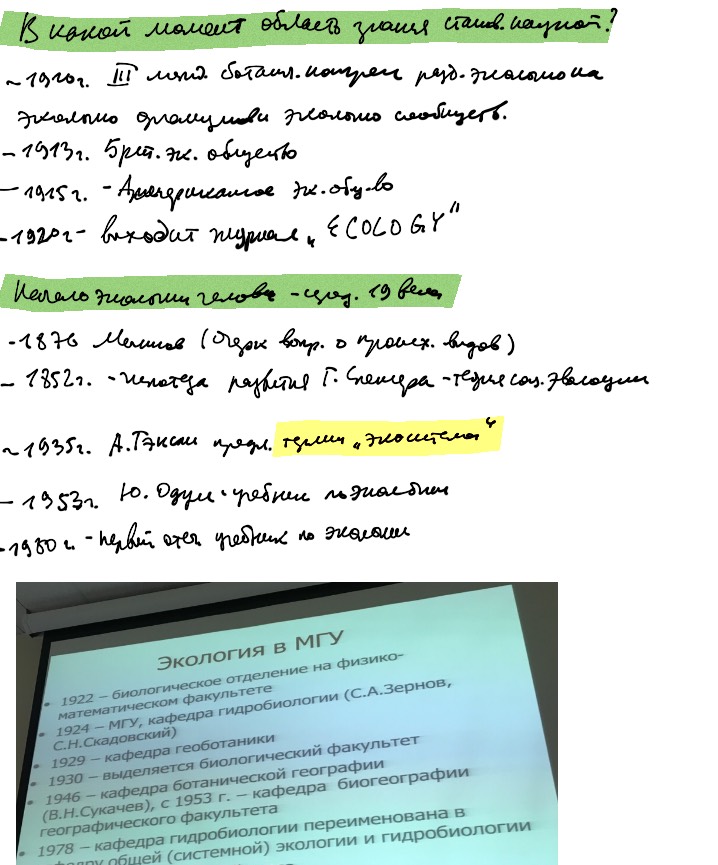 В какой момент область знания станов. научной?
~ 1910г. III межд. ботанич. конгресс разд. экологию на
экологию и экологию сообществ.
- 1913г. Брит. эк. общество
- 1915г. - Американское эк. общ-во
- 1920г - выходит журнал „ECOLOGY"
Начало экологии человека - сред. 19 века
- 1876 (Очерк вопр. о происх. видов)
- 1852г. - гипотеза развития Г. Спенсера - теория соц. эволюции
~ 1935г. А. Тэнсли предл. термин „экосистема"
- 1953г. Ю. Одум - учебник по экологии
- первый отеч. учебник по экологии
Экология в МГУ
• 1922 – биологическое отделение на физико-
математическом факультете
• 1924 – МГУ, кафедра гидробиологии (С.А.Зернов,
С.Н.Скадовский)
• 1929 – кафедра геоботаники
• 1930 – выделяется биологический факультет
• 1946 – кафедра ботанической географии
(В.Н.Сукачев), с 1953 г. – кафедра биогеографии
географического факультета
• 1978 – кафедра гидробиологии переименована в
общей (системной) экологии и гидробиологии